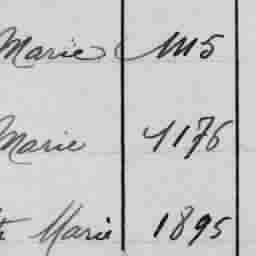 Marie 1115
Marie 4176
Marie 1895